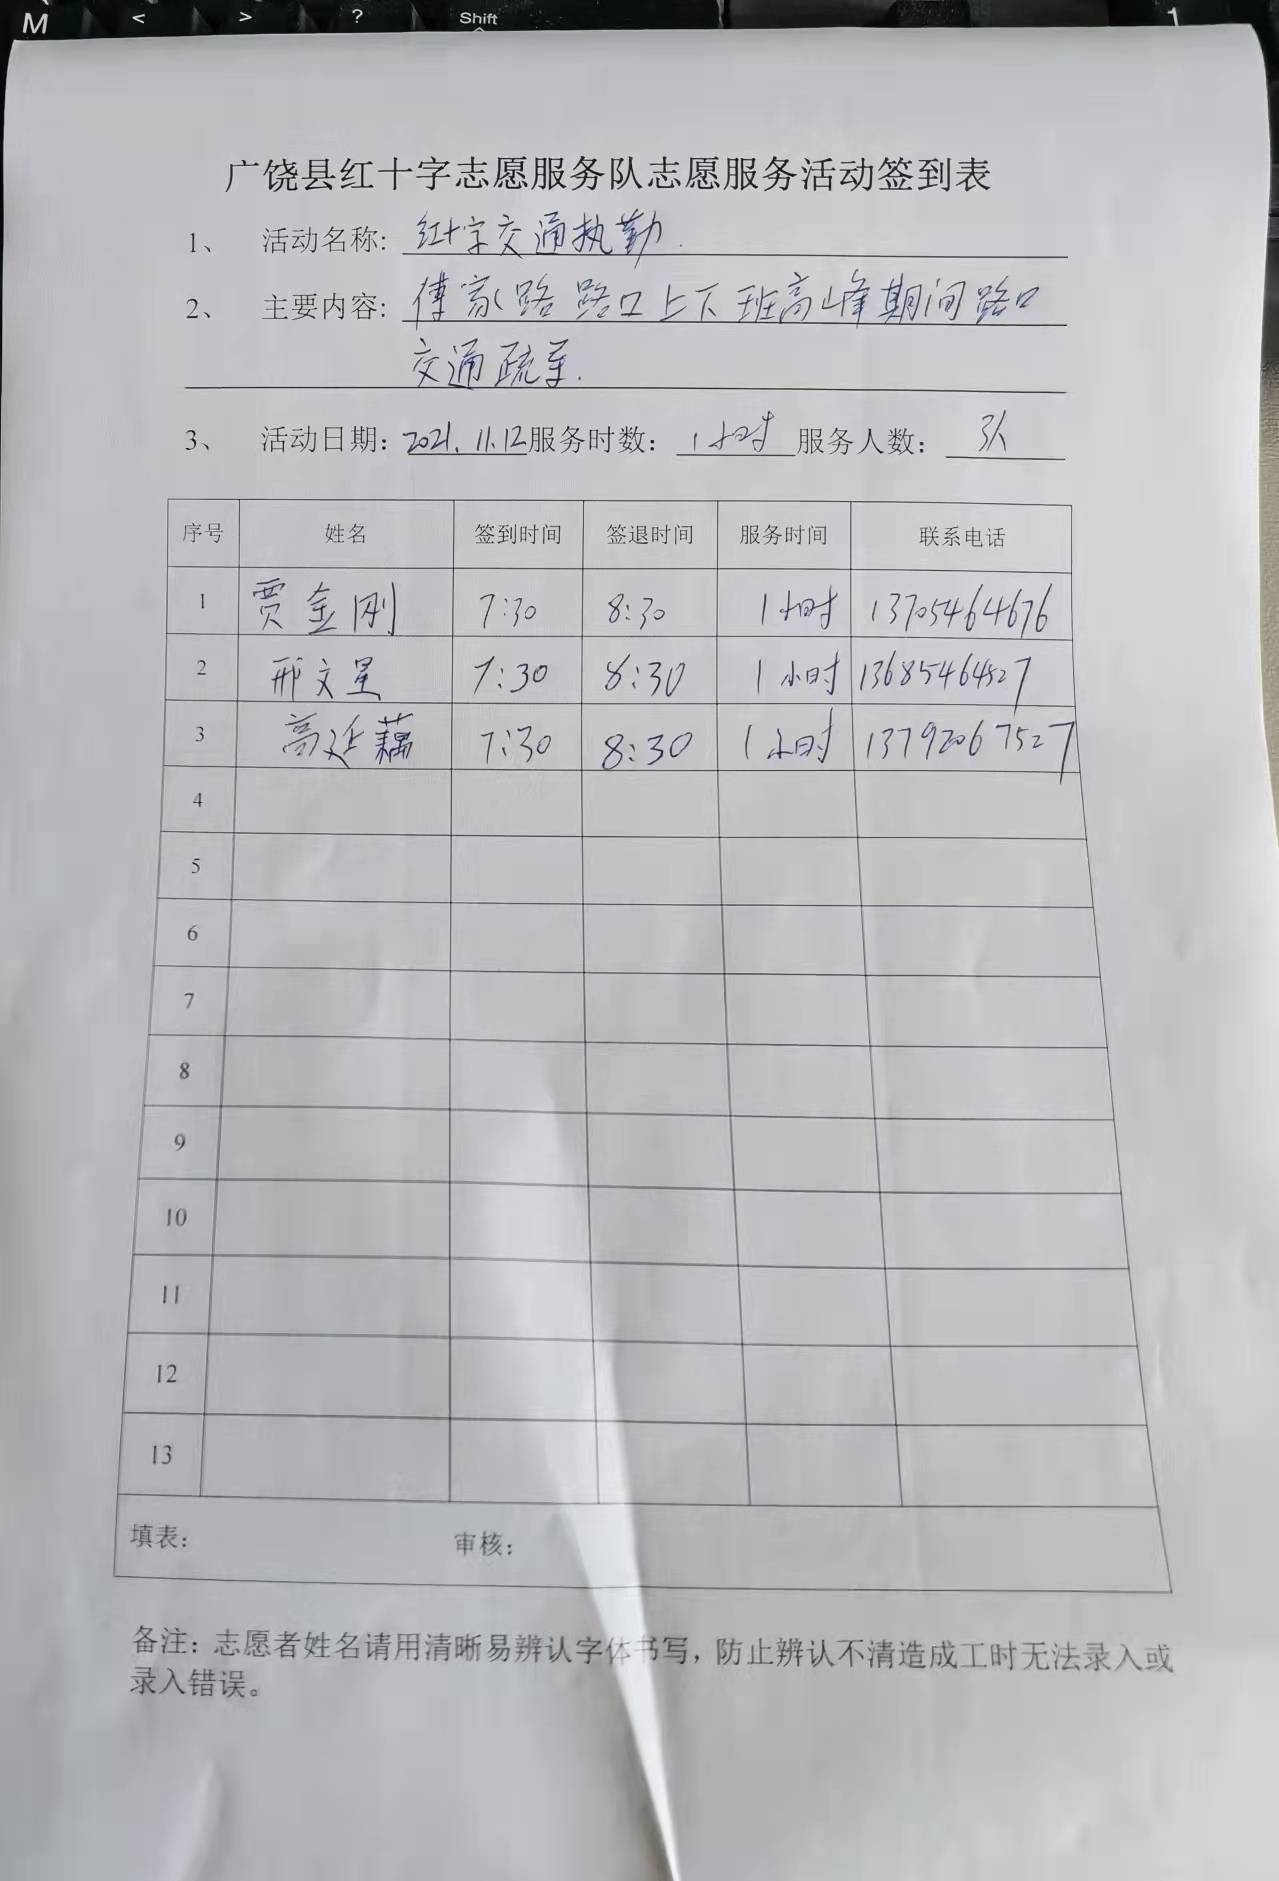 M < > ? Shift 1
广饶县红十字志愿服务队志愿服务活动签到表
1、 活动名称: 红十字交通执勤.
2、 主要内容: 傅家路路口上下班高峰期间路口
交通疏导.
3、 活动日期: 2021.11.12 服务时数: 1小时 服务人数: 3人
序号 姓名 签到时间 签退时间 服务时间 联系电话
1 贾金刚 7:30 8:30 1小时 13705464676
2 邢文星 7:30 8:30 1小时 13685464527
3 高延藕 7:30 8:30 1小时 13792067527
4
5
6
7
8
9
10
11
12
13
填表: 审核:
备注: 志愿者姓名请用清晰易辨认字体书写，防止辨认不清造成工时无法录入或
录入错误。